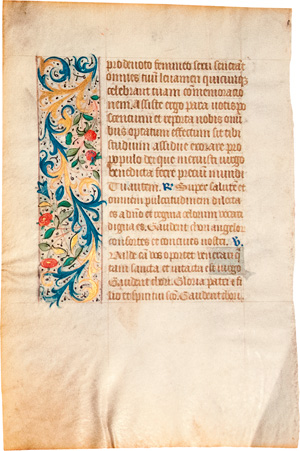 pro devoto femineo sexu senciāt
omnes tuū levamen quicumq;
celebrant tuam commemoratio
nem. Assiste ergo parata votis po
scencium et reporta nobis omi
bus optatum effectum sit tibi
studium assidue exorare pro
populo dei que meruisti virgo
benedicta ferre precium mundi
Tu autem. R. Super salutē et
omnem pulcritudinem dilecta
es a dn̄o et regina celorum vocari
digna es. Gaudent chori angelor
consortes et concives nostri. V.
et intacta est virgo
Gaudent chori. Gloria patri et fi
lio et spiritui sc̄o. Gaudent chori.